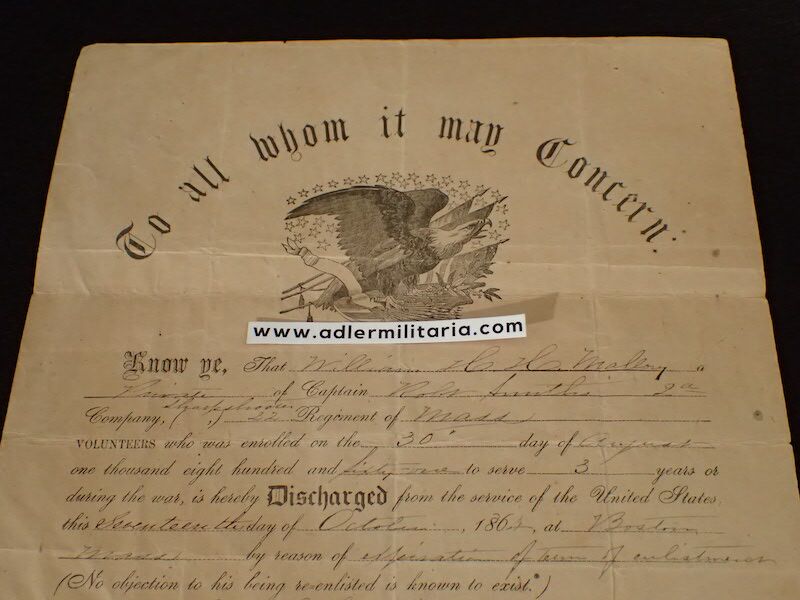 To all whom it may Concern:
www.adlermilitaria.com
Know ye, That William H. H. a
Private of Captain Robt Smith's 2d
Sharpshooters
Company, ( ,) 22 Regiment of Mass
VOLUNTEERS who was enrolled on the 30" day of August
one thousand eight hundred and sixty one to serve 3 years or
during the war, is hereby Discharged from the service of the United States,
this Seventeenth day of October, 1864, at Boston
Mass by reason of expiration of term of enlistment
(No objection to his being re-enlisted is known to exist.*)